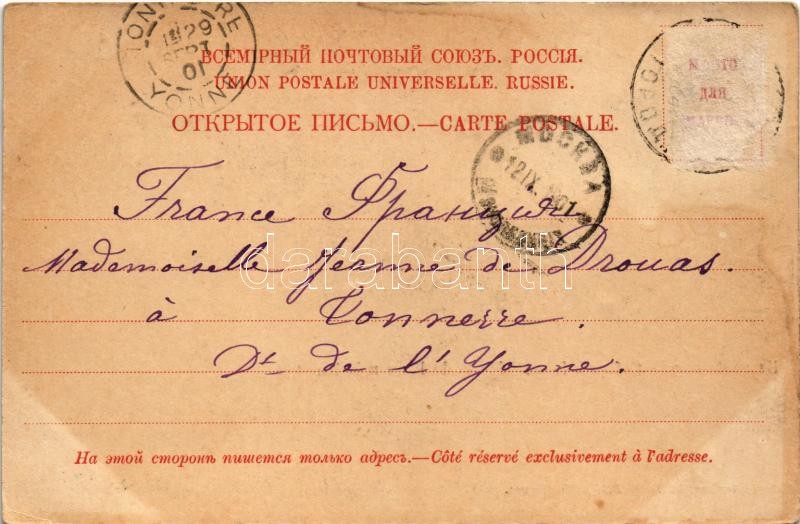 TONNERRE
29
SEPT
01
YONNE
ВСЕМІРНЫЙ ПОЧТОВЫЙ СОЮЗЪ. РОССІЯ.
UNION POSTALE UNIVERSELLE. RUSSIE.
ОТКРЫТОЕ ПИСЬМО.—CARTE POSTALE.
МѢСТО
ДЛЯ
МАРКИ.
МОСКВА
12 IX 1901
France Франція
Mademoiselle Jeanne de Drouas.
à Tonnerre.
Dt de l'Yonne.
На этой сторонѣ пишется только адресъ.—Côté réservé exclusivement à l'adresse.
darabanth